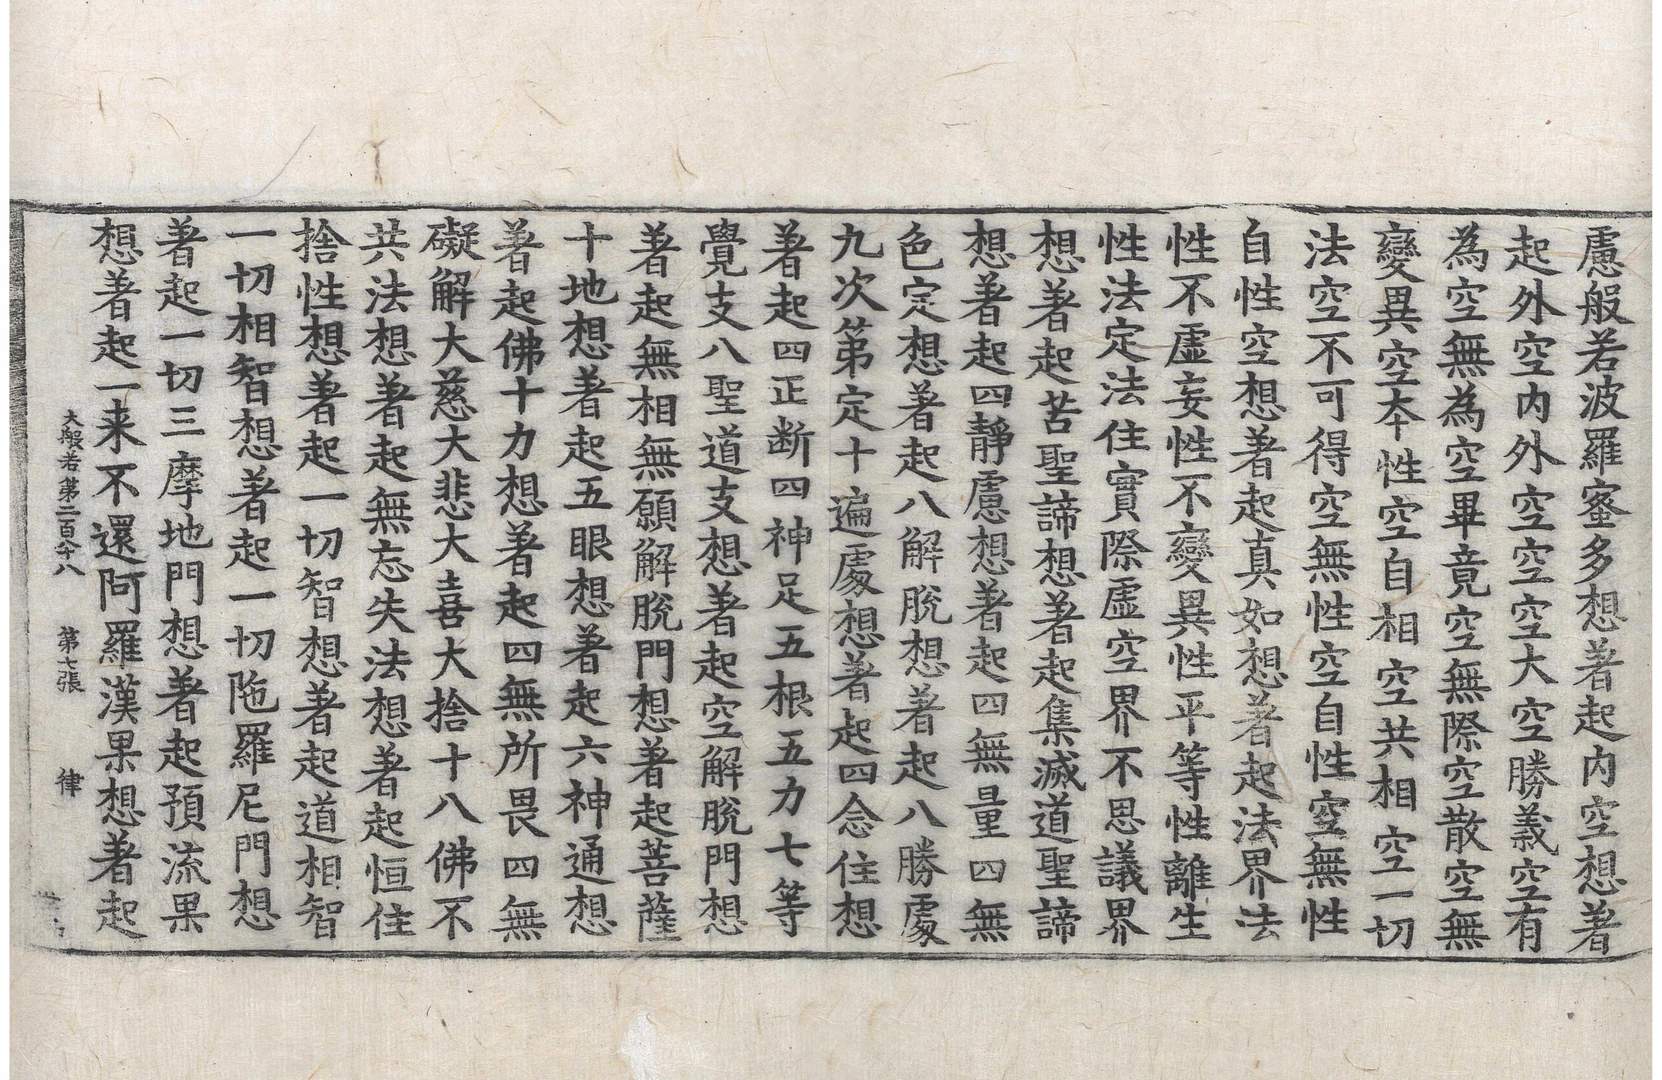 慮般若波羅蜜多想著起内空想著
起外空内外空空空大空勝義空有
為空無為空畢竟空無際空散空無
變異空本性空自相空共相空一切
法空不可得空無性空自性空無性
自性空想著起真如想著起法界法
性不虛妄性不變異性平等性離生
性法定法住實際虛空界不思議界
想著起苦聖諦想著起集滅道聖諦
想著起四靜慮想著起四無量四無
色定想著起八解脫想著起八勝處
九次第定十遍處想著起四念住想
著起四正断四神足五根五力七等
覺支八聖道支想著起空解脫門想
著起無相無願解脫門想著起菩薩
十地想著起五眼想著起六神通想
著起佛十力想著起四無所畏四無
礙解大慈大悲大喜大捨十八佛不
共法想著起無忘失法想著起恒住
捨性想著起一切智想著起道相智
一切相智想著起一切陁羅尼門想
著起一切三摩地門想著起預流果
想著起一来不還阿羅漢果想著起
大般若第二百六十八 第七張 律